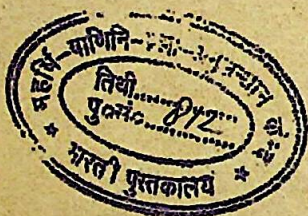 महर्षि-पाणिनि-
केन्द्र
तिथी............
पु०सं०....812....
* भारती पुस्तकालय *